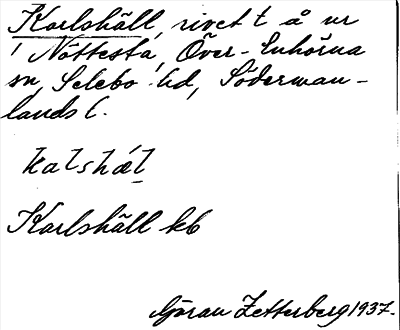 Karlshäll, rivet t å ur
i Nöttesta, Över-Enhörna
sn, Selebo hd, Söderman-
lands l.
kalshæl
Karlshäll kb
Göran Zetterberg 1937.